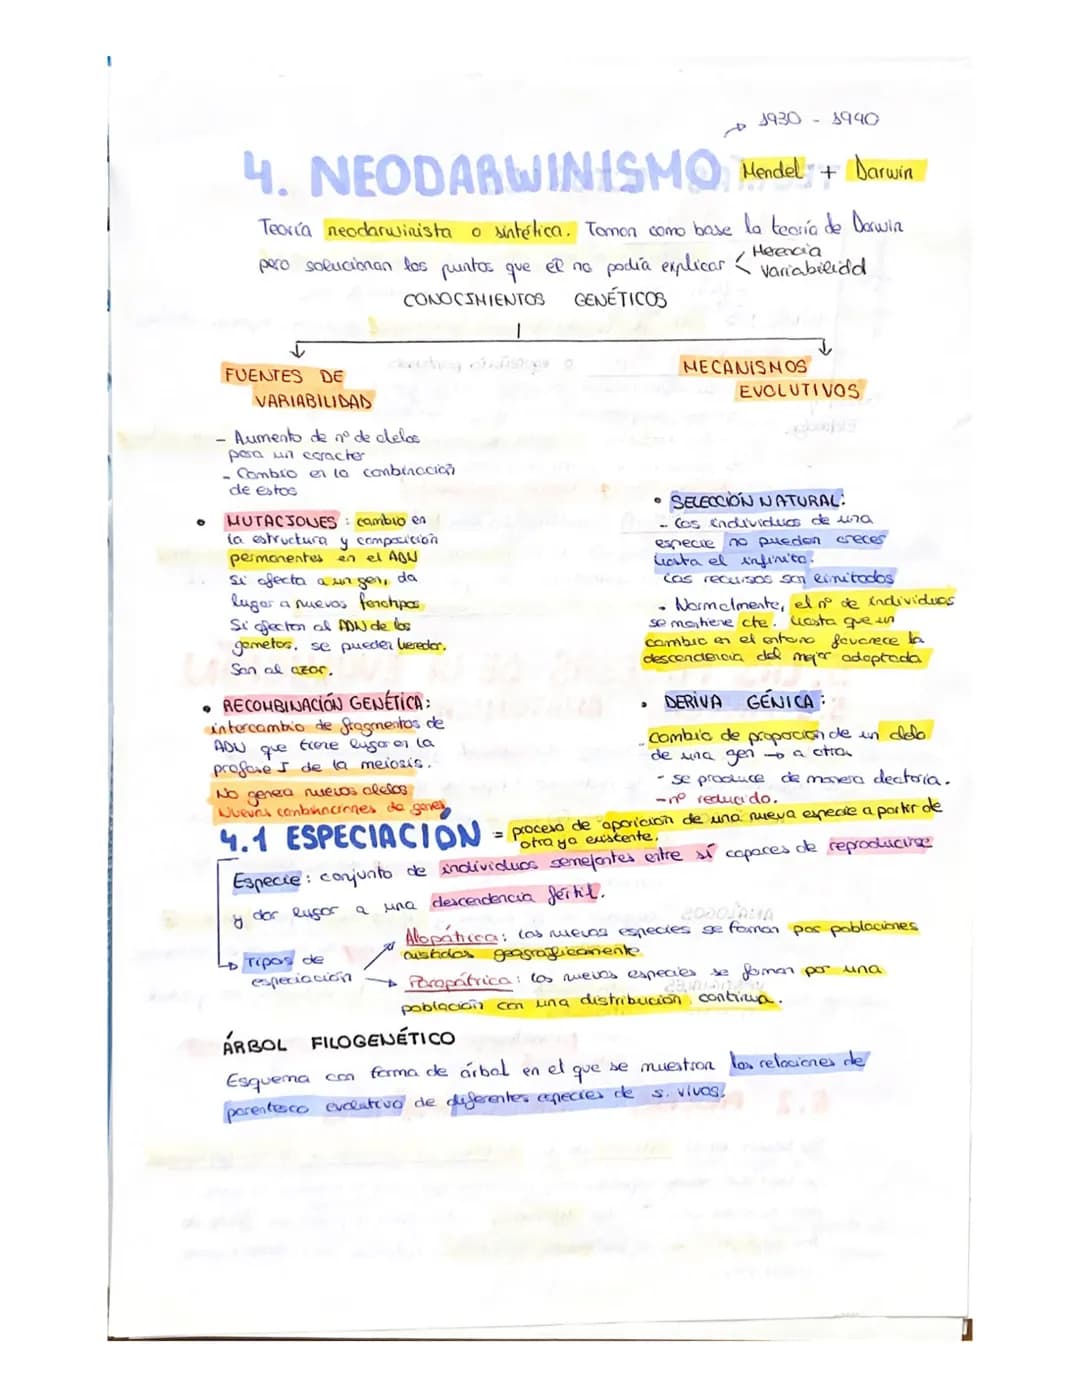 1930 - 1940
4. NEODARWINISMO Mendel + Darwin
Teoría neodarwinista o sintética. Toman como base la teoría de Darwin
pero solucionan los puntos que él no podía explicar < Herencia
Variabilidad
CONOCIMIENTOS GENÉTICOS
FUENTES DE
VARIABILIDAD
- Aumento de nº de alelos
para un caracter
- Cambio en la combinación
de estos
• MUTACIONES: cambio en
la estructura y composición
permanentes en el ADN
Si afecta a un gen, da
lugar a nuevos fenotipos
Si afectan al ADN de los
gametos, se pueden heredar.
Son al azar.
• RECOMBINACIÓN GENÉTICA:
intercambio de fragmentos de
ADN que tiene lugar en la
profase I de la meiosis.
No genera nuevos alelos
Nuevas combinaciones de genes
MECANISMOS
EVOLUTIVOS
• SELECCIÓN NATURAL:
- Los individuos de una
especie no pueden creces
hasta el infinito.
Los recursos son limitados
- Normalmente, el nº de individuos
se mantiene cte. hasta que un
cambio en el entorno favorece la
descendencia del mejor adaptado
• DERIVA GÉNICA:
- Cambio de proporción de un alelo
de una gen → a otra
- se produce de manera aleatoria.
- nº reducido.
4.1 ESPECIACIÓN = proceso de aparición de una nueva especie a partir de
otra ya existente.
Especie: conjunto de individuos semejantes entre sí capaces de reproducirse
y dar lugar a una descendencia fértil.
→ Tipos de
especiación
Alopátrica: las nuevas especies se forman por poblaciones
aisladas geográficamente
→ Parapátrica: las nuevas especies se forman por una
población con una distribución continua.
ÁRBOL FILOGENÉTICO
Esquema con forma de árbol en el que se muestran las relaciones de
parentesco evolutivo de diferentes especies de s. vivos.